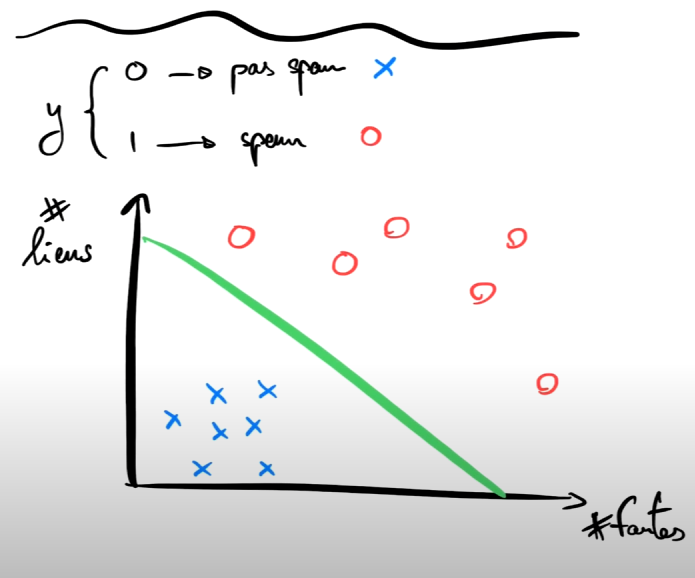 y { 0 → pas spam ×
1 → spam ○
# liens
# fautes